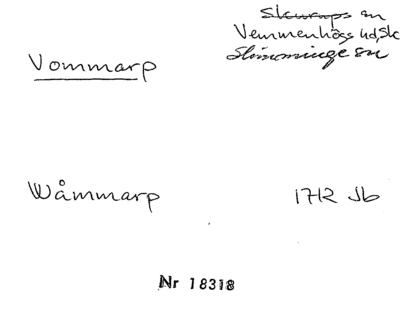 Skurups sn
Vemmenhögs hd, Sk
Vommarp
Slimminge sn
Wåmmarp
1712 Jb
Nr 18318